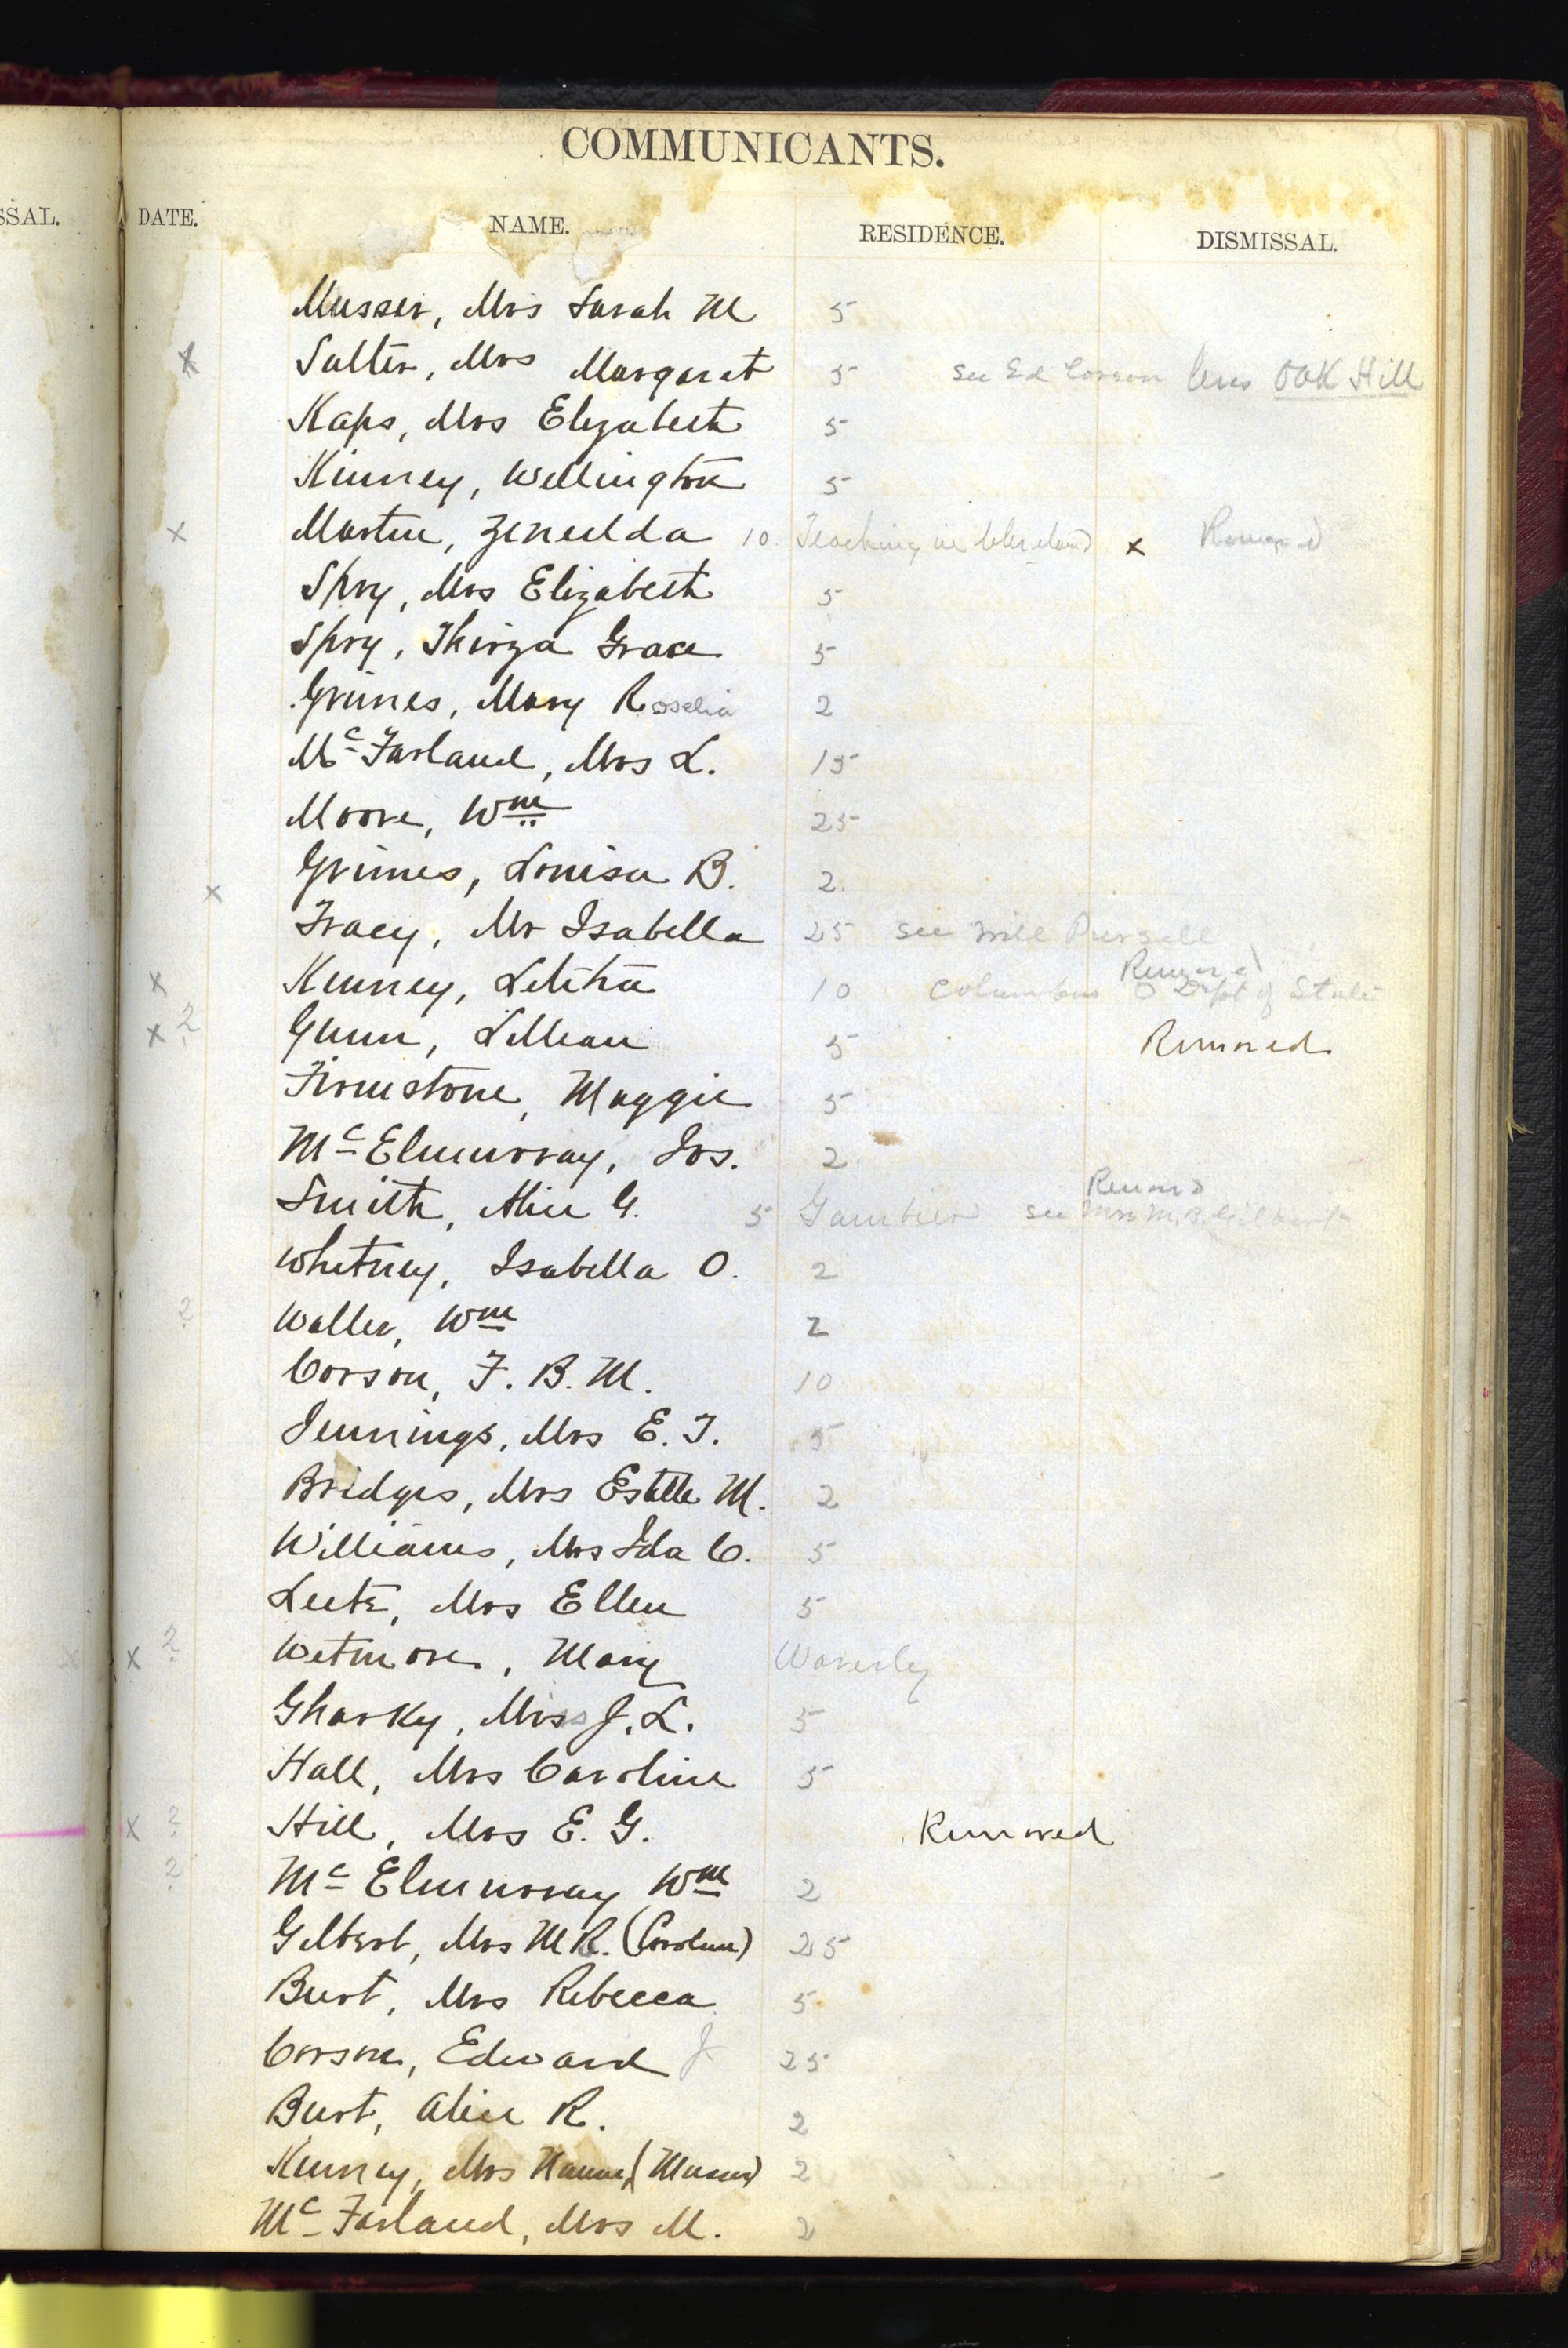 COMMUNICANTS.
SSAL. DATE. NAME. RESIDENCE. DISMISSAL.
Musser, Mrs Sarah M 5
x Salter, Mrs Margaret 5 see Ed Corson lives OAK Hill
Kaps, Mrs Elizabeth 5
Kinney, Wellington 5
x Martin, Zeneilda 10 Teaching in Cleveland x Removed
Spry, Mrs Elizabeth 5
Spry, Thirza Grace 5
Grimes, Mary Roselia 2
Mc Farland, Mrs L. 15
Moore, Wm 25
Grimes, Louisa B. 2.
x Tracy, Mr Isabella 25 see Will Pursell
x Kinney, Letitia 10 Columbus O Removed Dept of State
x ? Gunn, Lillian 5 Removed
Firmstone, Maggie 5
Mc Elmurray, Jos. 2
Smith, Alice G. 5 Gambier Removed see Mrs M.R. Gilbert
Whitney, Isabella O. 2
? Waller, Wm 2
Corson, F. B. M. 10
Jennings, Mrs E. T. 5
Bridges, Mrs Estelle M. 2
Williams, Mrs Ida C. 5
Leete, Mrs Ellen 5
x x ? Wetmore, Mary Waverly
Gharky, Miss J. L. 5
Hall, Mrs Caroline 5
x ? Hill, Mrs E. G. Removed
? Mc Elmurray Wm 2
Gilbert, Mrs M R. (Caroline) 25
Burt, Mrs Rebecca 5
Corson, Edward J 25
Burt, Alice R. 2
Kinney, Mrs Nannie (Musser) 2
Mc Farland, Mrs M. 2